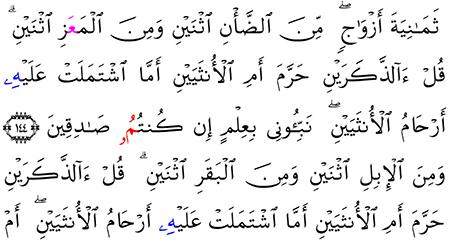 ثَمَٰنِيَةَ أَزْوَٰجٍۖ مِّنَ ٱلضَّأْنِ ٱثْنَيْنِ وَمِنَ ٱلْمَعَزِ ٱثْنَيْنِۗ
قُلْ ءَآلذَّكَرَيْنِ حَرَّمَ أَمِ ٱلْأُنثَيَيْنِ أَمَّا ٱشْتَمَلَتْ عَلَيْهِۦ
أَرْحَامُ ٱلْأُنثَيَيْنِۖ نَبِّـُٔونِى بِعِلْمٍ إِن كُنتُمُۥ صَٰدِقِينَ ١٤٤
وَمِنَ ٱلْإِبِلِ ٱثْنَيْنِ وَمِنَ ٱلْبَقَرِ ٱثْنَيْنِۗ قُلْ ءَآلذَّكَرَيْنِ
حَرَّمَ أَمِ ٱلْأُنثَيَيْنِ أَمَّا ٱشْتَمَلَتْ عَلَيْهِۦ أَرْحَامُ ٱلْأُنثَيَيْنِۖ أَمْ